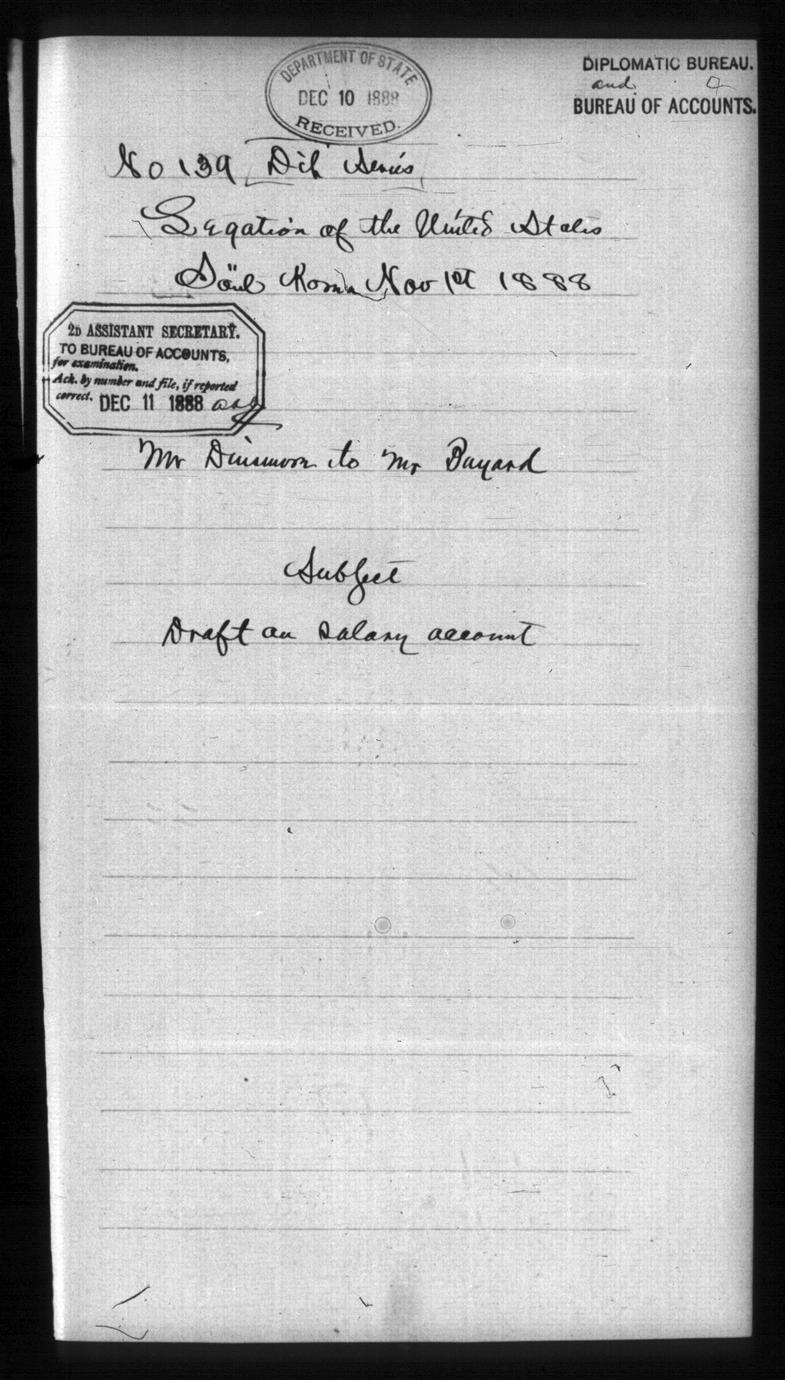 DEPARTMENT OF STATE
DEC 10 1888
RECEIVED.
DIPLOMATIC BUREAU.
and
BUREAU OF ACCOUNTS.
No 139 Dip Series
Legation of the United States
Söul Korea Nov 1st 1888
2D ASSISTANT SECRETARY.
TO BUREAU OF ACCOUNTS,
for examination.
Ack. by number and file, if reported
correct. DEC 11 1888
Mr Dinsmore to Mr Bayard
Subject
Draft on salary account